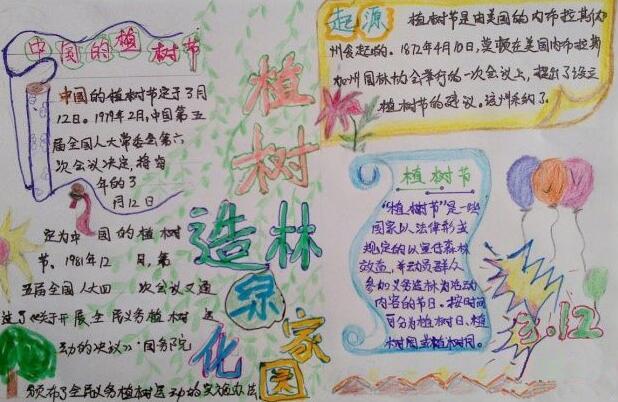 中国的植树节
中国的植树节定于3月
12日。1979年2月,中国第五
届全国人大常委会第六
次会议决定,将每
年的3
月12日
定为中国的植树
节、1981年12月,第
五届全国人大四次会议又通
过了《关于开展全民义务植树运
动的决议》·国务院
颁布了全民义务植树运动的实施办法
植树
造林
绿
化
家
园
起源
植树节是由美国的内布拉斯
州发起的。1872年4月10日,莫顿在美国内布拉斯
加州园林协会举行的一次会议上,提出了设立
植树节的建议。该州采纳了
植树节
“植树节”是一些
国家以法律形式
规定的以宣传森林
效益,并动员群众
参加义务造林为活动
内容的节日。按时间
可分为植树日、植
树周或植树月。
3.12